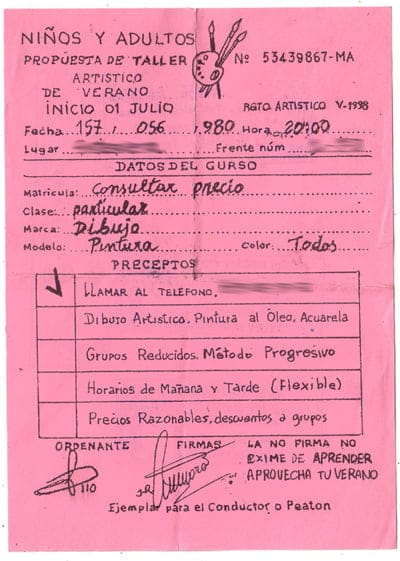 NIÑOS Y ADULTOS
PROPUESTA DE TALLER
ARTISTICO
DE VERANO
INICIO 01 JULIO
Nº 53439867-MA
RGTO ARTISTICO V-1998
Fecha 157, 056, 980. Hora 20:00
Lugar Frente núm
DATOS DEL CURSO
Matricula: Consultar precio
Clase: particular
Marca: Dibujo
Modelo: Pintura Color: Todos
PRECEPTOS
LLAMAR AL TELEFONO.
Dibujo Artistico. Pintura al Óleo, Acuarela
Grupos Reducidos. Método Progresivo
Horarios de Mañana y Tarde (Flexible)
Precios Razonables, descuentos a grupos
ORDENANTE FIRMAS
LA NO FIRMA NO
EXIME DE APRENDER
APROVECHA TU VERANO
Ejemplar para el Conductor o Peaton